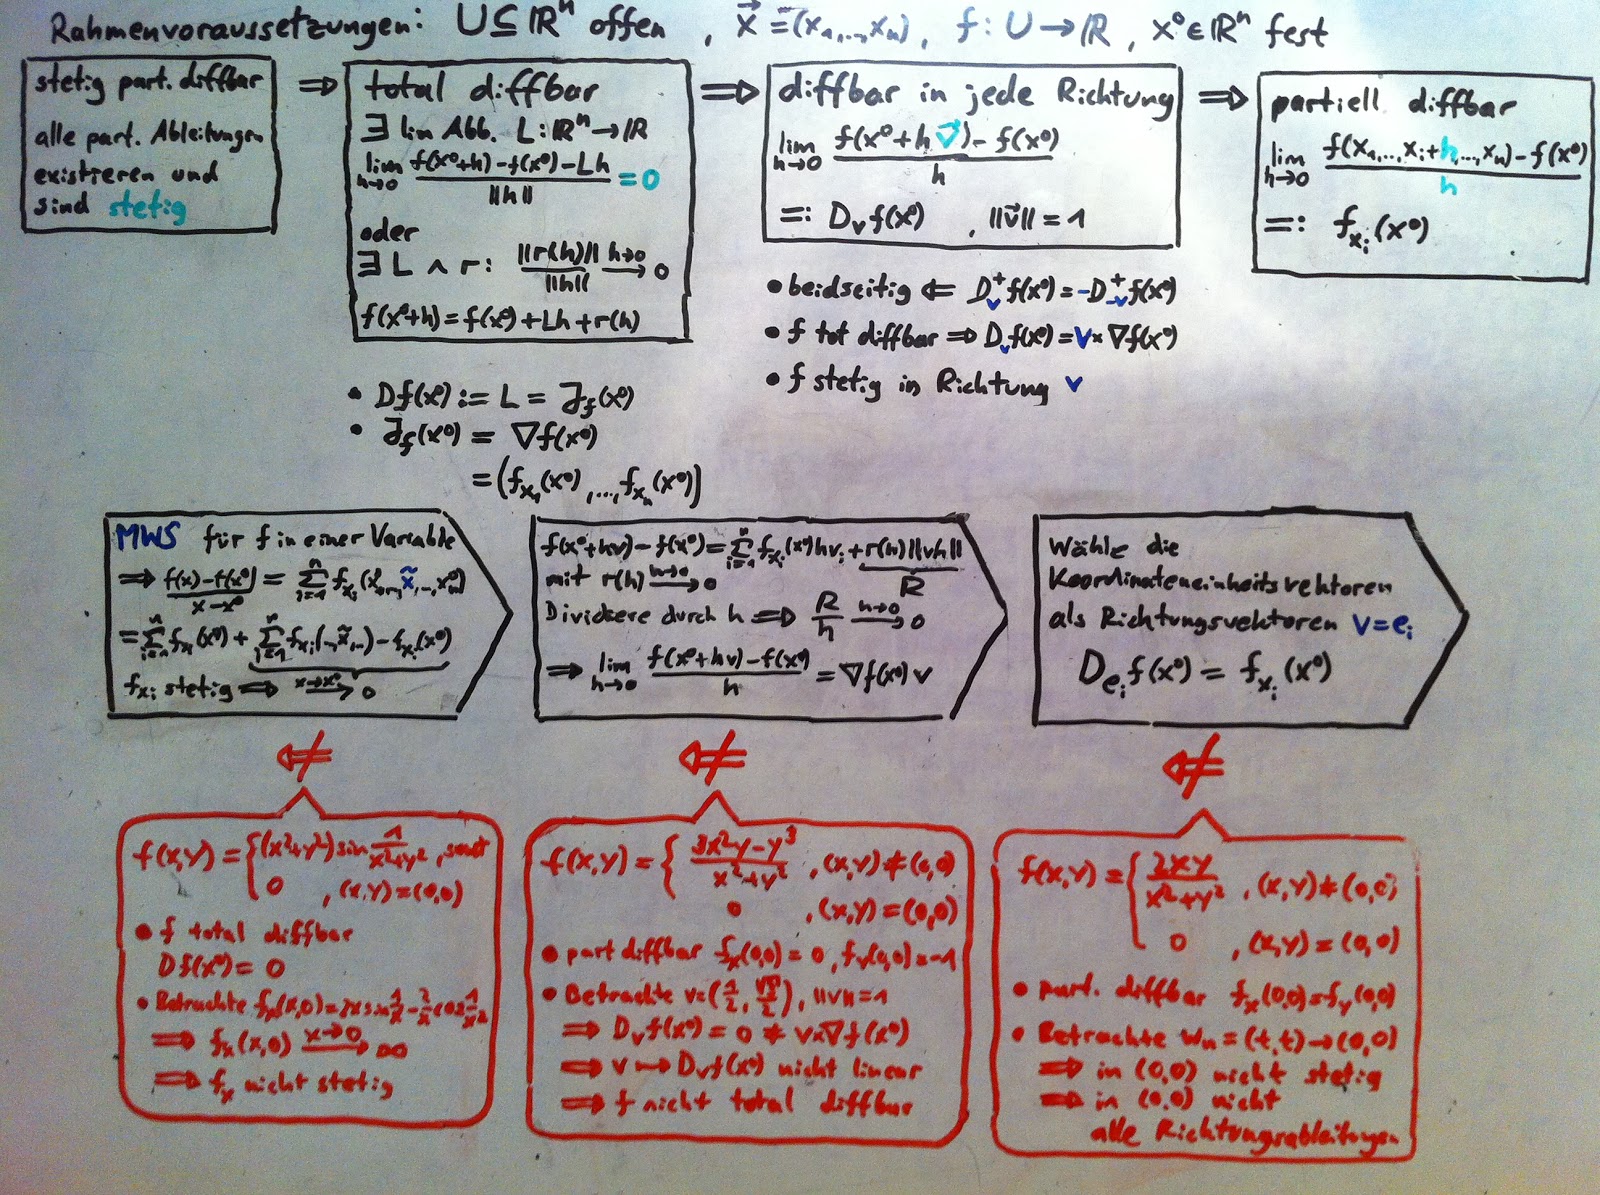 Rahmenvoraussetzungen: U⊆ℝⁿ offen , x⃗ = (x₁,...,xₙ), f: U→ℝ, x⁰∈ℝⁿ fest
stetig part. diffbar
alle part. Ableitungen
existieren und
sind stetig
⇒
total diffbar
∃ lin Abb. L: ℝⁿ→ℝ
lim h→0 (f(x⁰+h)-f(x⁰)-Lh)/||h|| = 0
oder
∃ L ∧ r: ||r(h)||/||h|| →(h→0) 0
f(x⁰+h) = f(x⁰)+Lh+r(h)
• Df(x⁰) := L = J_f(x⁰)
• J_f(x⁰) = ∇f(x⁰)
= (f_x₁(x⁰),...,f_xₙ(x⁰))
⇒
diffbar in jede Richtung
lim h→0 (f(x⁰+hv⃗)-f(x⁰))/h
=: D_v f(x⁰) , ||v⃗|| = 1
• beidseitig ⇐ D_v⁺f(x⁰) = -D_-v⁺f(x⁰)
• f tot diffbar ⇒ D_v f(x⁰) = v × ∇f(x⁰)
• f stetig in Richtung v
⇒
partiell diffbar
lim h→0 (f(x₁,...,xᵢ+h,...,xₙ)-f(x⁰))/h
=: f_xᵢ(x⁰)
MWS für f in einer Variable
⇒ (f(x)-f(x⁰))/(x-x⁰) = Σᵢ₌₁ⁿ f_xᵢ(x⁰₁,..,x̃,..,x⁰ₙ)
= Σᵢ₌₁ⁿ f_xᵢ(x⁰) + Σᵢ₌₁ⁿ f_xᵢ(..,x̃,..)-f_xᵢ(x⁰)
f_xᵢ stetig ⇒ →(x→x⁰) 0
f(x⁰+hv)-f(x⁰) = Σᵢ₌₁ⁿ f_xᵢ(x⁰)hvᵢ + r(h)||vh||
mit r(h) →(h→0) 0 R
Dividiere durch h ⇒ R/h →(h→0) 0
⇒ lim h→0 (f(x⁰+hv)-f(x⁰))/h = ∇f(x⁰)v
Wähle die
Koordinateneinheitsvektoren
als Richtungsvektoren v=eᵢ
D_eᵢ f(x⁰) = f_xᵢ(x⁰)
⇍
f(x,y) = { (x²+y²) sin 1/(x²+y²) , sonst
0 , (x,y)=(0,0)
• f total diffbar
Df(x⁰) = 0
• Betrachte f_x(x,0) = 2x sin 1/x² - 2/x cos 1/x²
⇒ f_x(x,0) →(x→0) ∞
⇒ f_x nicht stetig
⇍
f(x,y) = { (3x²y-y³)/(x²+y²) , (x,y)≠(0,0)
0 , (x,y)=(0,0)
• part diffbar f_x(0,0)=0, f_y(0,0)=-1
• Betrachte v=(1/2, √3/2), ||v||=1
⇒ D_v f(x⁰) = 0 ≠ v×∇f(x⁰)
⇒ v↦D_v f(x⁰) nicht linear
⇒ f nicht total diffbar
⇍
f(x,y) = { 2xy/(x²+y²) , (x,y)≠(0,0)
0 , (x,y)=(0,0)
• part. diffbar f_x(0,0)=f_y(0,0)
• Betrachte wₙ=(t,t)→(0,0)
⇒ in (0,0) nicht stetig
⇒ in (0,0) nicht
alle Richtungsableitungen